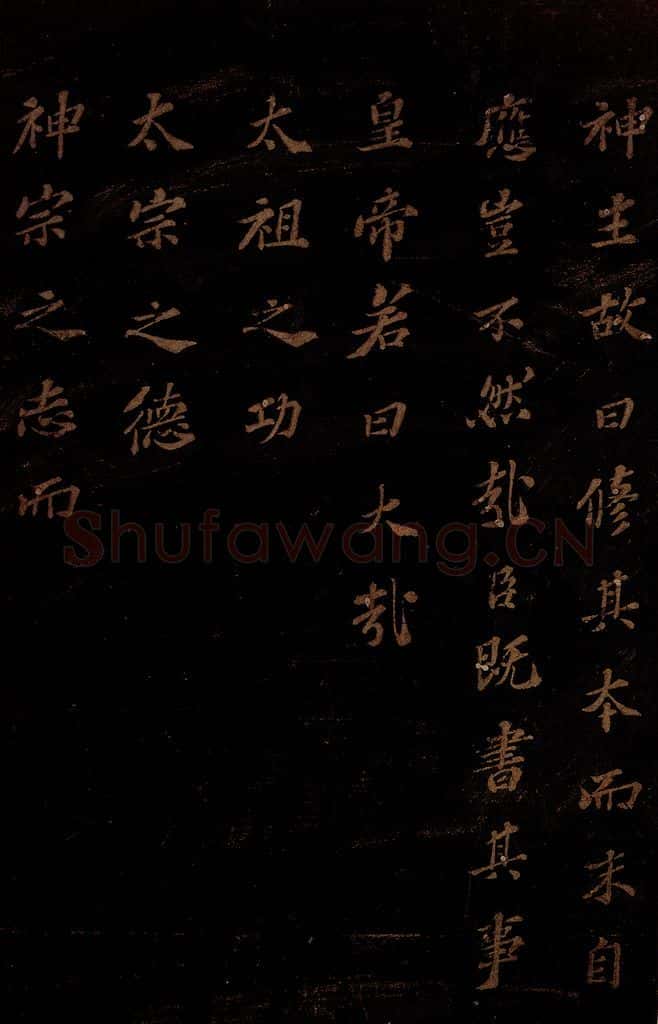 神主故曰脩其本而末自
應豈不然哉臣既書其事
皇帝若曰大哉
太祖之功
太宗之德
神宗之志而
Shufawang.CN